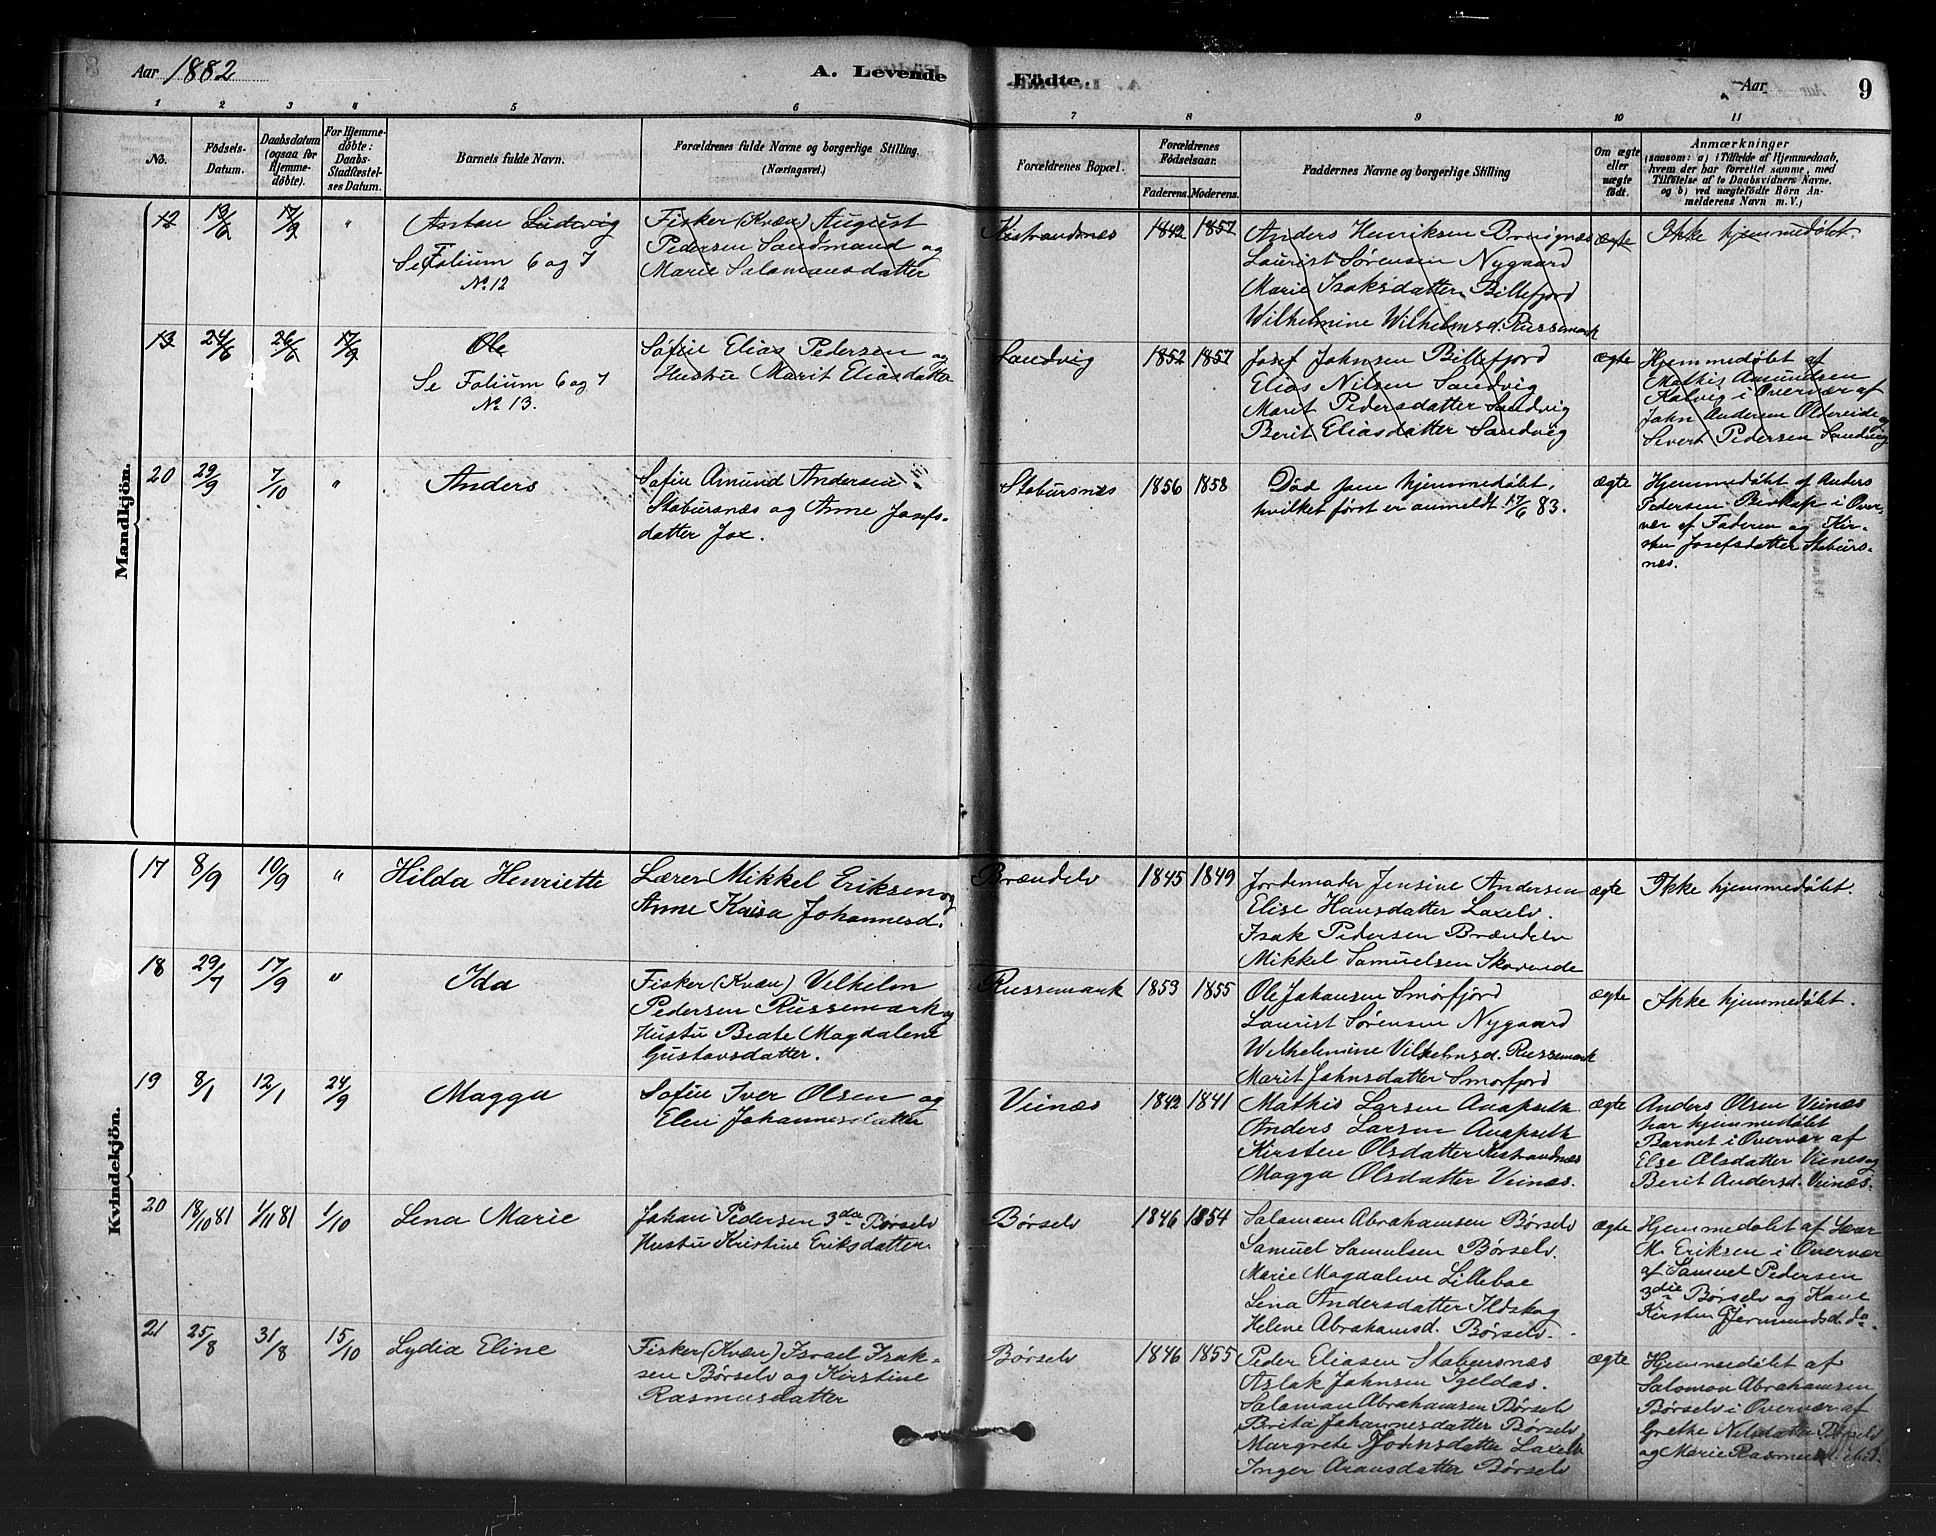 Aar 1882
A. Levende
Fødte.
Aar
9
1 2 3 4 5 6 7 8 9 10 11
No.
Födsels-
Datum.
Daabsdatum
(ogsaa for
Hjemme-
døbte).
For Hjemme-
døbte:
Daabs-
Stadfæstel-
ses Datum.
Barnets fulde Navn.
Forældrenes fulde Navne og borgerlige Stilling.
(Næringsvei.)
Forældrenes Bopæl.
Forældrenes
Fødselsaar.
Faderens. Moderens.
Faddernes Navne og borgerlige Stilling
Om ægte
eller
uægte
født.
Anmærkninger
(saasom: a) i Tilfælde af Hjemmedaab,
hvem der har forrettet samme, med
Tilføielse af to Daabsvidners Navne,
og b) ved uægtefødte Börn An-
melderens Navn m. V.)
Mandkjön.
12
13/6
17/9
"
Anton Ludvig
Se Folium 6 og 7
No. 12
Fisker (Kvæn) August
Pedersen Sandmand og
Marie Salamonsdatter
Kistrandsnæs
1842
1857
Anders Henriksen
Laurist Sørensen Nygaard
Marie Isaksdatter Billefjord
Wilhelmine Wilhelmsd. Russemark
ægte
Ikke hjemmedøbt.
13
24/6
26/6
17/9
Ole
Se Folium 6 og 7
No. 13.
Søfin Elias Pedersen og
Hustru Marit Eliasdatter
Sandvig
1852
1857
Josef Johnsen Billefjord
Elias Nilsen Sandvig
Marit Pedersdatter Sandvig
Berit Eliasdatter Sandvig
ægte
Hjemmedøbt af
Mathis Amundsen
i Overvær af
John Andersen Oldereide og
Sivert Pedersen Sandvig
20
29/9
7/10
"
Anders
Søfin Amund Andersen
Stabursnæs og Anne Josefs-
datter Jox.
Stabursnæs
1856
1858
Død som hjemmedøbt,
hvilket først er anmeldt 17/6 83.
ægte
Hjemmedøbt af Anders
Pedersen Biskop i Over-
vær af Faderen og Kir-
sten Josefsdatter Staburs-
næs.
Kvindekjön.
17
8/9
10/9
"
Hilda Henriette
Lærer Mikkel Eriksen og
Anne Kaisa Johannesd.
Brændelv
1845
1849
Jordemoder Jensine Andersen
Elise Hansdatter Laxelv.
Isak Pedersen Brændelv
Mikkel Samuelsen
ægte
Ikke hjemmedøbt.
18
29/7
17/9
"
Ida
Fisker (Kvæn) Vilhelm
Pedersen Russemark og
Hustru Beate Magdalene
Gustavsdatter.
Russemark
1853
1855
Ole Johansen Smørfjord
Laurist Sørensen Nygaard
Wilhelmine Vilhelmsd. Russemark
Marit Johnsdatter Smørfjord
ægte
Ikke hjemmedøbt.
19
8/1
12/1
24/9
Magga
Søfin Iver Olsen og
Elen Johannesdatter
Veinæs
1842
1841
Mathis Larsen
Anders Larsen
Kirsten Olsdatter Kistrandnæs
Magga Olsdatter Veinæs.
ægte
Anders Olsen Veinæs
har hjemmedøbt
Barnet i Overvær af
Else Olsdatter Veinæs og
Berit Andersd. Veinæs.
20
18/10 81
1/11 81
1/10
Lena Marie
Johan Pedersen 3die Børselv
Hustru Kristine Eriksdatter
Børselv
1846
1854
Salamon Abrahamsen Børselv
Samuel Samulsen Børselv.
Marie Magdalene Lillebae
Lena Andersdatter Ildskog
Helene Abrahamsd. Børselv.
ægte
Hjemmedøbt af Lærer
M. Eriksen i Overvær
af Samuel Pedersen
3die Børselv og Kone
Kirsten Gjermundsd. do.
21
25/8
31/8
15/10
Lydia Eline
Fisker (Kvæn) Israel Isak-
sen Børselv og Kirstine
Rasmusdatter
Børselv
1846
1855
Peder Eliasen Stabursnæs
Aslak Johnsen Igeldas.
Salamon Abrahamsen Børselv
Brita Johannesdatter Børselv
Margrete Johnsdatter Laxelv
Inger Aronsdatter Børselv
ægte
Hjemmedøbt af
Salomon Abrahamsen
Børselv i Overvær af
Grethe Nilsdatter Børselv
og Marie Rasmusd. ibid.